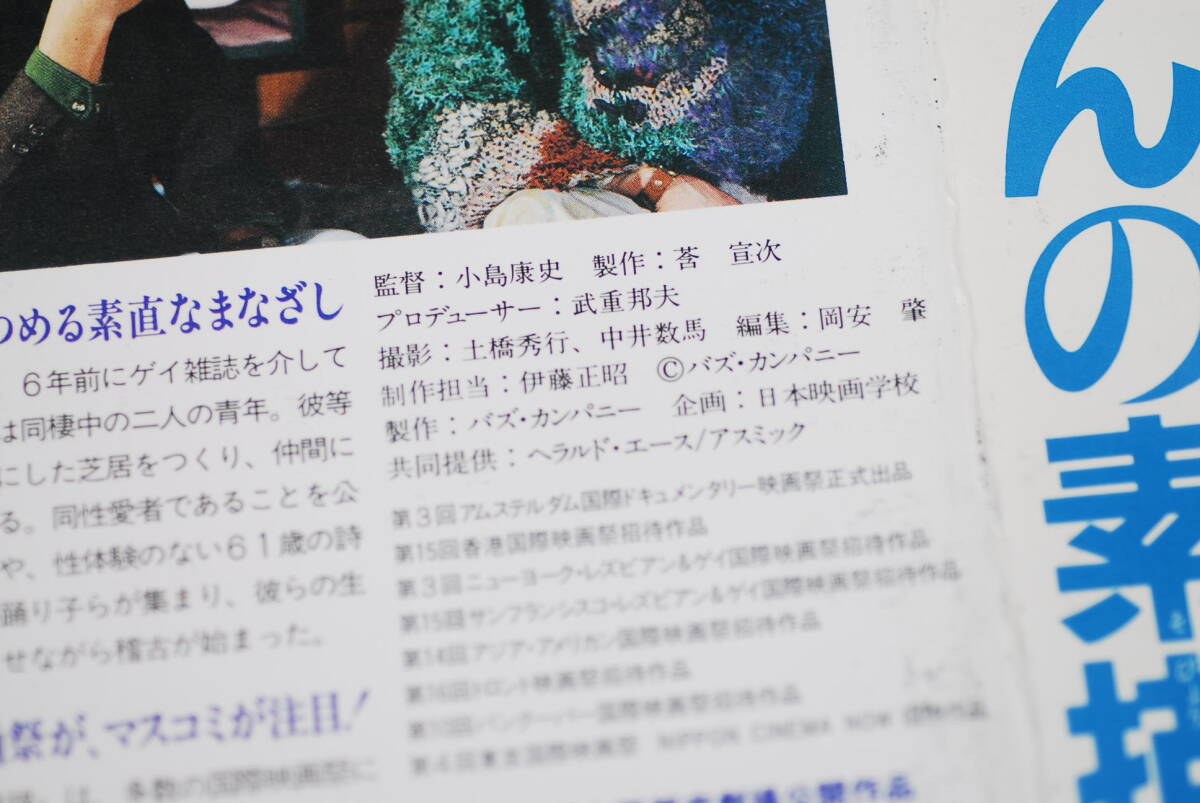 のめる素直なまなざし
6年前にゲイ雑誌を介して
は同棲中の二人の青年。彼等
にした芝居をつくり、仲間に
る。同性愛者であることを公
や、性体験のない61歳の詩
踊り子らが集まり、彼らの生
せながら稽古が始まった。
祭が、マスコミが注目!
は、多数の国際映画祭に
監督:小島康史 製作:荅 宣次
プロデューサー:武重邦夫
撮影:土橋秀行、中井数馬 編集:岡安 肇
制作担当:伊藤正昭 ©バズ・カンパニー
製作:バズ・カンパニー 企画:日本映画学校
共同提供:ヘラルド・エース/アスミック
第3回アムステルダム国際ドキュメンタリー映画祭正式出品
第15回香港国際映画祭招待作品
第3回ニューヨーク・レズビアン&ゲイ国際映画祭招待作品
第15回サンフランシスコ・レズビアン&ゲイ国際映画祭招待作品
第14回アジア・アメリカン国際映画祭招待作品
第16回トロント映画祭招待作品
第10回バンクーバー国際映画祭招待作品
第4回東京国際映画祭 NIPPON CINEMA NOW 招待作品
公開作品
んの素描